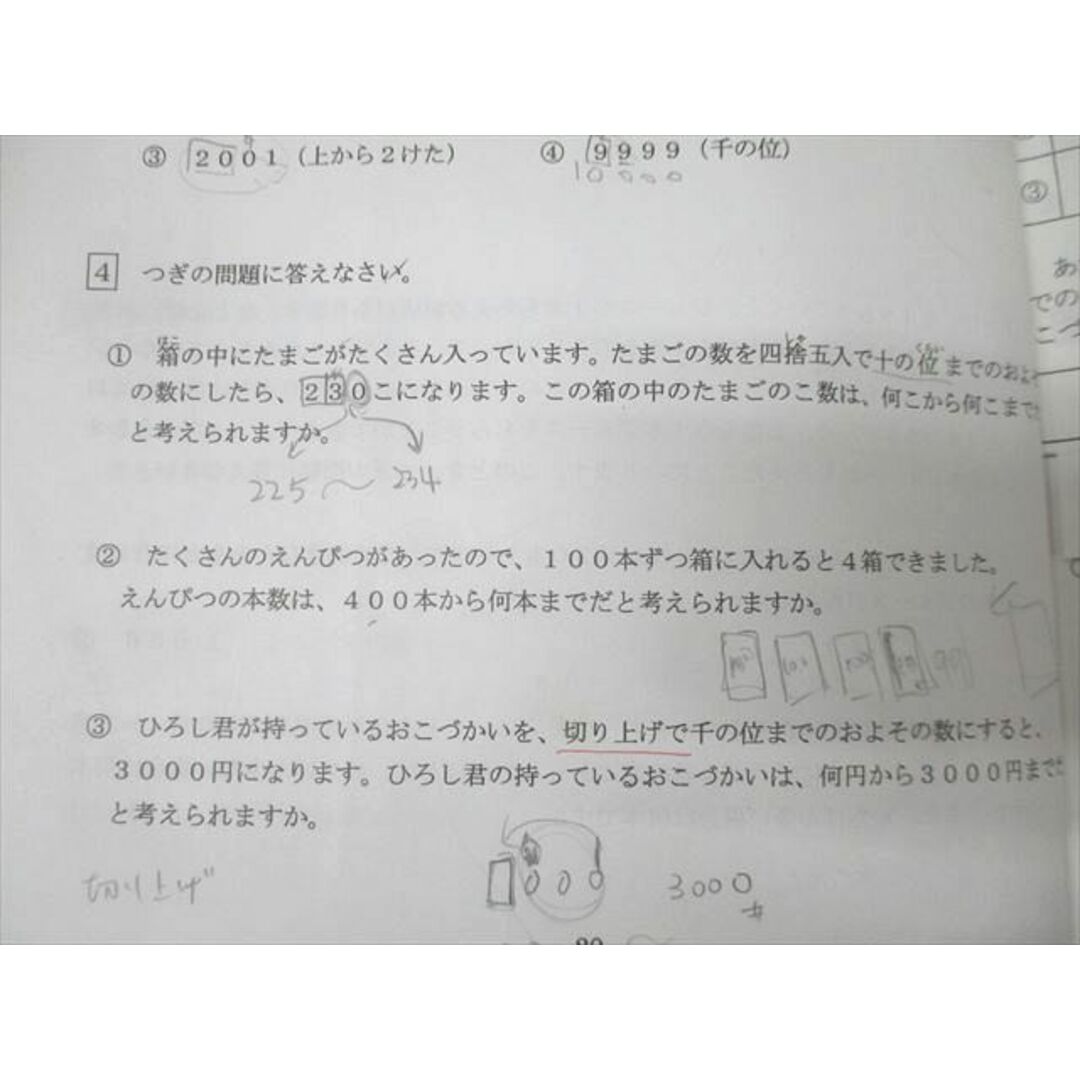 ③ 2001 (上から2けた) ④ 9999 (千の位)
10000
③
4 つぎの問題に答えなさい。
① 箱の中にたまごがたくさん入っています。たまごの数を四捨五入で十の位までのおよそ
の数にしたら、230こになります。この箱の中のたまごのこ数は、何こから何こまでだ
と考えられますか。
225 〜 234
② たくさんのえんぴつがあったので、100本ずつ箱に入れると4箱できました。
えんぴつの本数は、400本から何本までだと考えられますか。
100 100 100 100
③ ひろし君が持っているおこづかいを、切り上げで千の位までのおよその数にすると、
3000円になります。ひろし君の持っているおこづかいは、何円から3000円までだ
と考えられますか。
切り上げ 000 3000
あ
での
こづ